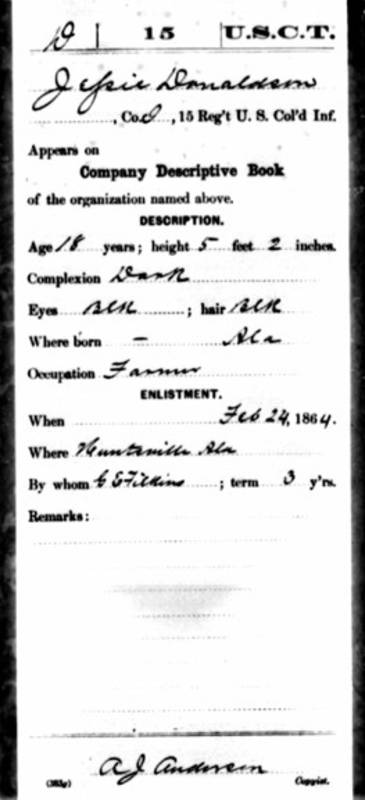 D | 15 | U.S.C.T.
Jessie Donaldson
, Co. D, 15 Reg't U. S. Col'd Inf.
Appears on
Company Descriptive Book
of the organization named above.
DESCRIPTION.
Age 18 years; height 5 feet 2 inches.
Complexion Dark
Eyes Blk ; hair Blk
Where born — Ala
Occupation Farmer
ENLISTMENT.
When Feb 24, 1864.
Where Huntsville Ala
By whom G E Filkins ; term 3 y'rs.
Remarks:
A J Anderson
(383g) Copyist.